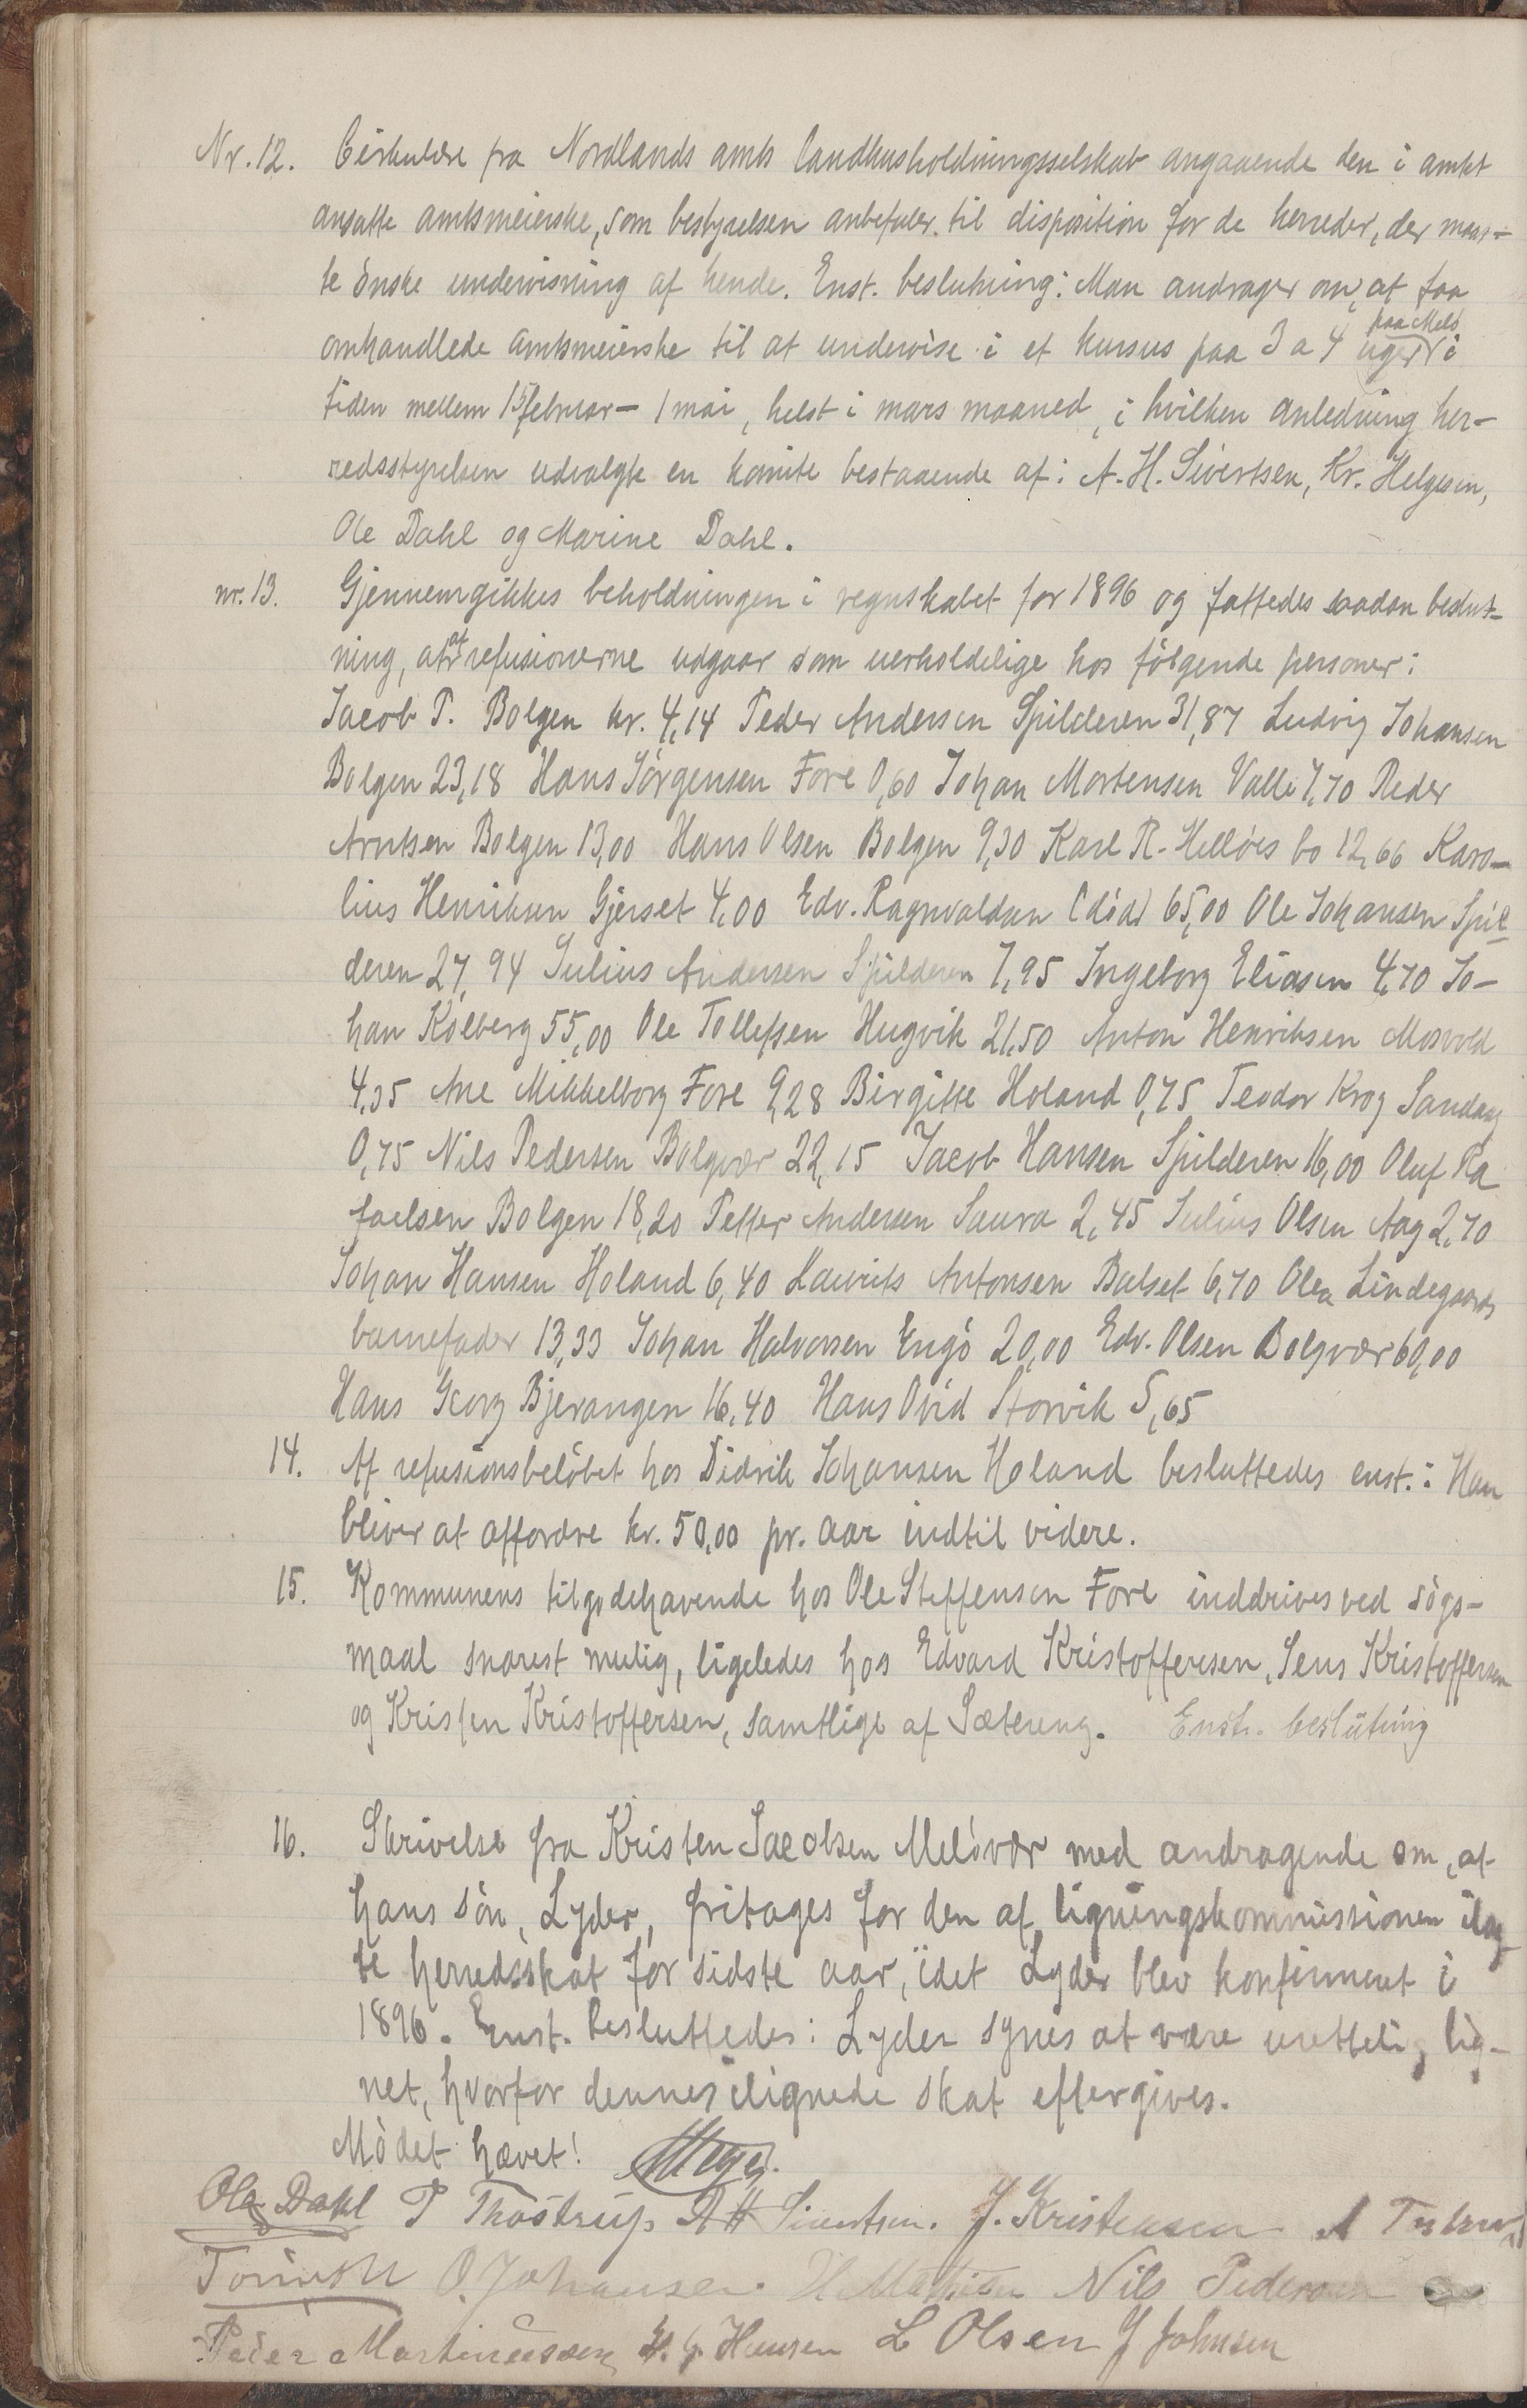 Nr. 12. Cirkulære fra Nordlands amts landhusholdningsselskab angaaende den i amtet
ansatte amtsmeierske, som bestyrelsen anbefaler til disposition for de herreder, der maat-
te ønske undervisning af hende. Enst. beslutning: Man andrager om, at faa
omhandlede amtsmeierske til at undervise i et kursus paa 3 a 4 uger paa Melø i
tiden mellem 15 februar – 1 mai, helst i mars maaned, i hvilken anledning her-
redsstyrelsen udvalgte en komite bestaaende af: A. H. Sivertsen, Kr. Helgesen,
Ole Dahl og Marine Dahl.
nr. 13. Gjennemgikkes beholdningen i regnskabet for 1896 og fattedes saadan beslut-
ning, at af refusionerne udgaar som uerholdelige hos følgende personer:
Jacob P. Bolgen kr. 4,14 Peder Andersen Spilderen 31,87 Ludvig Johansen
Bolgen 23,18 Hans Jørgensen Fore 0,60 Johan Mortensen Valle 7,70 Peder
Arntsen Bolgen 13,00 Hans Olsen Bolgen 9,30 Karl R. Helløes bo 12,66 Karo-
lius Henriksen Gjerset 4,00 Edv. Ragnvaldsen (død) 65,00 Ole Johansen Spil-
deren 27,94 Julius Andersen Spilderen 7,95 Ingeborg Eliasen 4,70 Jo-
han Kølberg 55,00 Ole Tollefsen Hugvik 21,50 Anton Henriksen Mosvold
4,35 Ane Mikkelborg Fore 9,28 Birgitte Holand 0,75 Teodor Krog Sandøy
0,75 Nils Pedersen Bolgvær 22,15 Jacob Hansen Spilderen 16,00 Oluf Ra
faelsen Bolgen 18,20 Petter Andersen Saura 2,45 Julius Olsen Aag 2,70
Johan Hansen Holand 6,40 Laurits Antonsen Balset 6,70 Olea Lindegaards
barnefader 13,33 Johan Halvorsen Engø 20,00 Edv. Olsen Bolgvær 60,00
Hans Georg Bjerangen 16,40 Hans Ovid Storvik 5,65
14. Af refusionsbeløbet hos Didrik Johansen Holand besluttedes enst.: Han
bliver at affordre kr. 50,00 pr. aar indtil videre.
15. Kommunens tilgodehavende hos Ole Steffensen Fore inddrives ved søgs-
maal snarest mulig, ligeledes hos Edvard Kristoffersen, Jens Kristoffersen
og Kristen Kristoffersen, samtlige af Sætereng. Enst. beslutning
16. Skrivelse fra Kristen Jacobsen Meløvær med andragende om, at
hans søn, Lyder, fritages for den af ligningskommissionen ilag-
te herredsskat for sidste aar, idet Lyder blev konfirmeret i
1896. Enst. besluttedes: Lyder synes at være urettelig lig-
net, hvorfor dennes ilignede skat eftergives.
Mødet hævet! Meyer.
Ole Dahl P Thostrup A H Sivertsen. J. Kristensen A
O. Johansen. Nils Pedersen
Peder Martinussen H. J. Hansen L Olsen J Johnsen